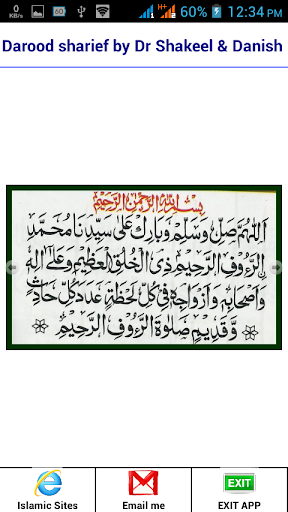 0
KB/s
60
H+
60%
12:34 PM
Darood sharief by Dr Shakeel & Danish
بِسْمِ اللّٰهِ الرَّحْمٰنِ الرَّحِيْمِ
اَللّٰهُمَّ صَلِّ وَسَلِّمْ وَبَارِكْ عَلٰى سَيِّدِنَا مُحَمَّدِ
الرَّءُوْفِ الرَّحِيْمِ ذِى الْخُلُقِ الْعَظِيْمِ وَعَلٰٓى اٰلِهٖ
وَاَصْحَابِهٖ وَاَزْوَاجِهٖ فِىْ كُلِّ لَحْظَةٍ عَدَدَ كُلِّ حَادِثٍ
وَّقَدِيْمٍ صَلٰوةُ الرَّءُوْفِ الرَّحِيْمِ
Islamic Sites
Email me
EXIT
EXIT APP